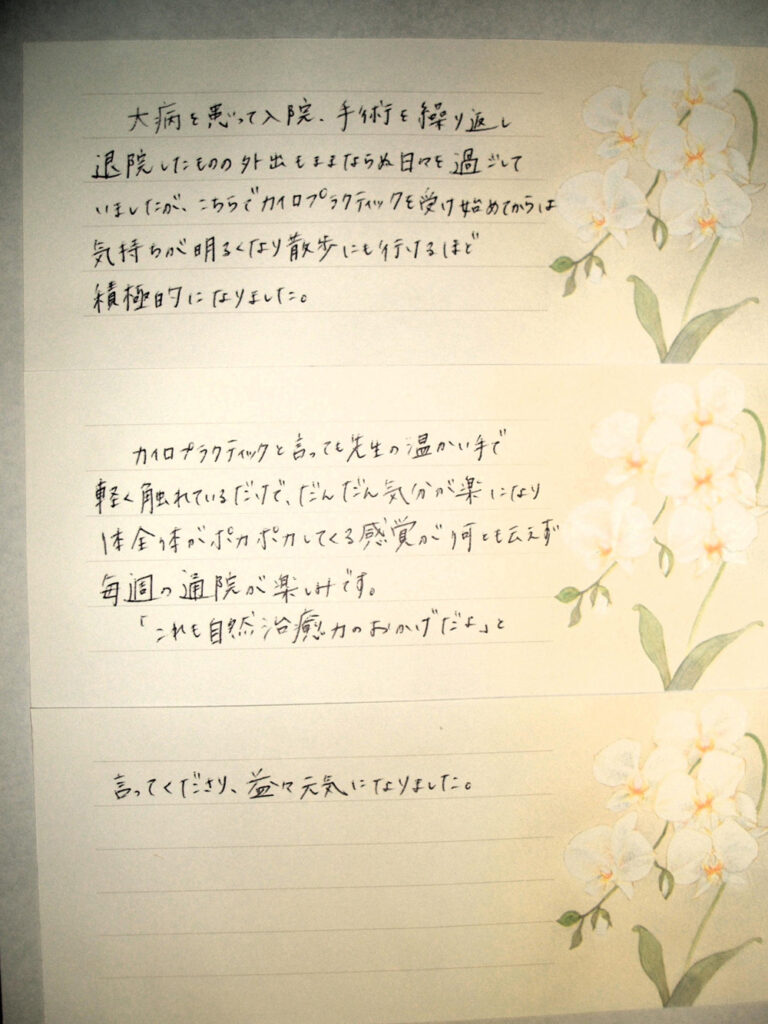 大病を患って入院、手術を繰り返し
退院したものの外出もままならぬ日々を過ごして
いましたが、こちらでカイロプラクティックを受け始めてからは
気持ちが明るくなり散歩にも行けるほど
積極的になりました。
カイロプラクティックと言っても先生の温かい手で
軽く触れているだけで、だんだん気分が楽になり
体全体がポカポカしてくる感覚が何とも云えず
毎週の通院が楽しみです。
「これも自然治癒力のおかげだよ」と
言ってくださり、益々元気になりました。